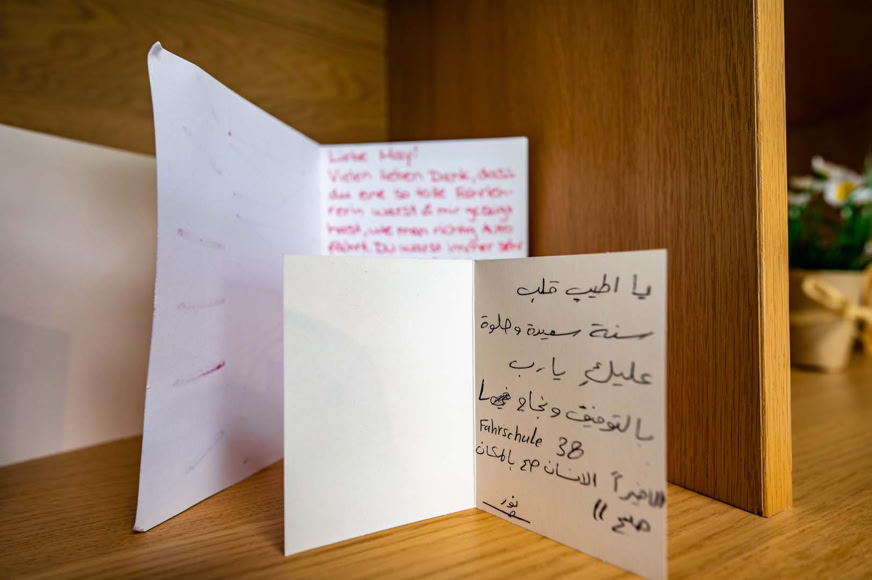 Liebe May!
Vielen lieben Dank, dass
du eine so tolle Fahrleh-
rerin warst & mir gezeigt
hast, wie man richtig Auto
fährt. Du warst immer sehr
يا اطيب قلب
سنة سعيدة وحلوة
عليكِ يا رب
بالتوفيق ونجاح
Fahrschule 38
الانسان صح بالمكان
صح ))
نور